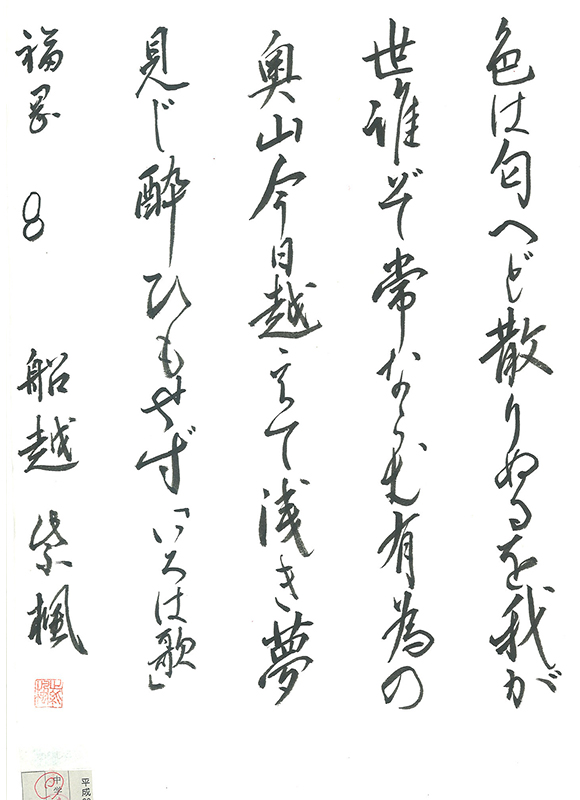 色は匂へど散りぬるを我が
世誰ぞ常ならむ有為の
奥山今日越えて浅き夢
見じ酔ひもせず「いろは歌」
福岡 8 船越 紫楓
平成
中学